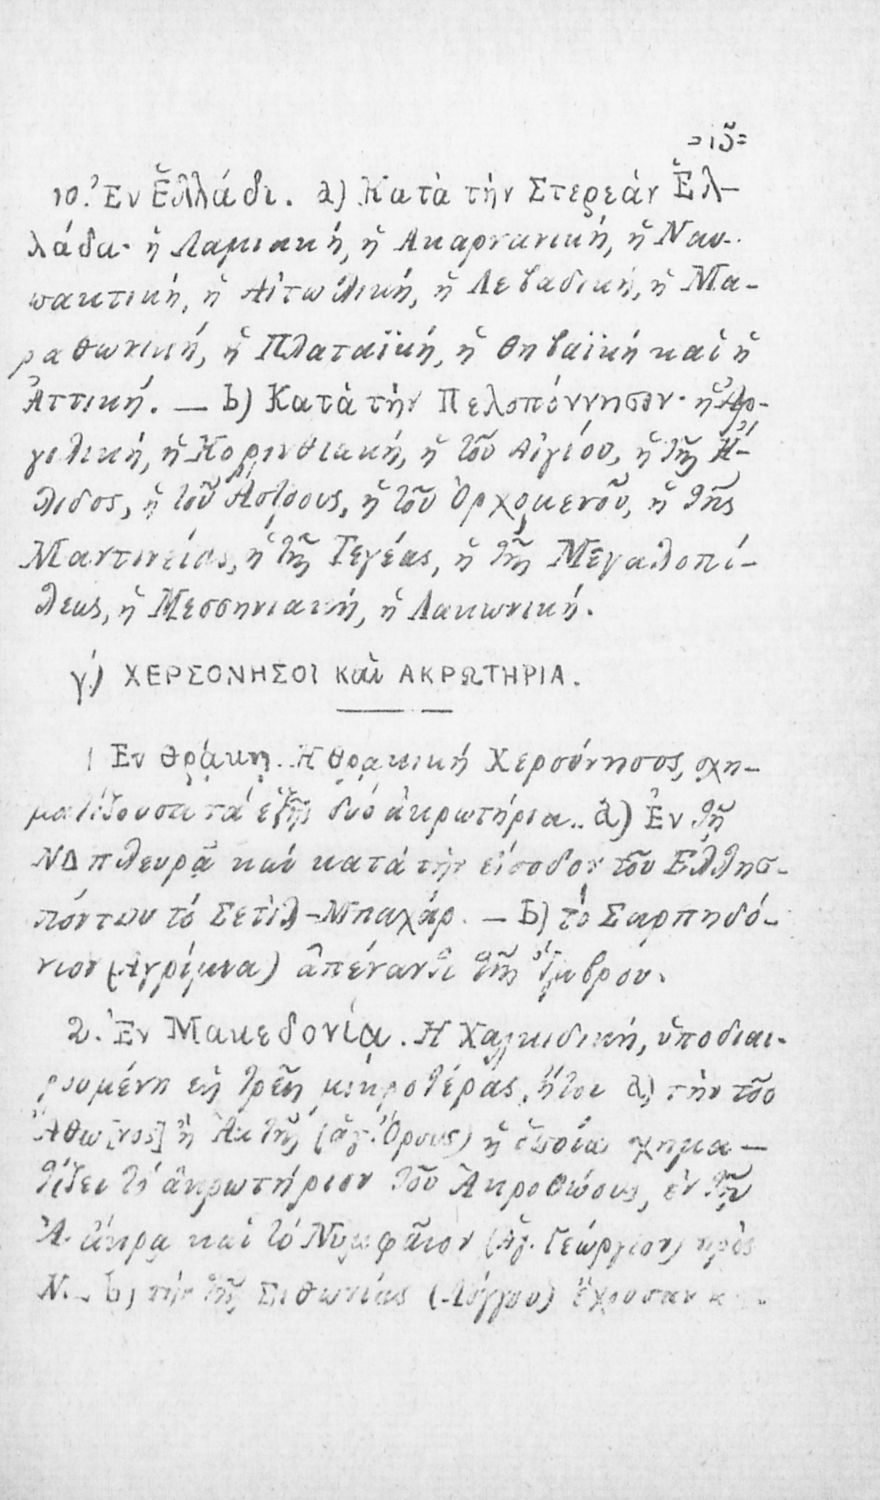 10. Ἐν Ἑλλάδι. a) Κατὰ τὴν Στερεὰν Ἑλ-
λάδα· ἡ Λαμιακή, ἡ Ἀκαρνανική, ἡ Ναυ-
πακτική, ἡ Αἰτωλική, ἡ Λεβαδική, ἡ Μα-
ραθωνική, ἡ Πλαταϊκή, ἡ Θηβαϊκή καὶ ἡ
Ἀττική. — b) Κατὰ τὴν Πελοπόννησον· ἡ Ἀρ-
γολική, ἡ Κορινθιακή, ἡ τοῦ Αἰγίου, ἡ τῆς Ἤ-
λιδος, ἡ τοῦ Ἄστρους, ἡ τοῦ Ὀρχομενοῦ, ἡ τῆς
Μαντινείας, ἡ τῆς Τεγέας, ἡ τῆς Μεγαλοπό-
λεως, ἡ Μεσσηνιακή, ἡ Λακωνική.
γ΄) ΧΕΡΣΟΝΗΣΟΙ καὶ ΑΚΡΩΤΗΡΙΑ.
1 Ἐν Θράκῃ. Ἡ Θρακική Χερσόνησος, σχη-
ματίζουσα τά ἑξῆς δυό ἀκρωτήρια.. a) Ἐν τῇ
ΝΔ πλευρᾷ καί κατά τὴν εἴσοδον τοῦ Ἑλλησ-
πόντου τό Σετίλ-Μπαχάρ. — b) τὸ Σαρπηδό-
νιον (Αγρίμια) ἀπέναντι τῆς Ἴμβρου.
2. Ἐν Μακεδονίᾳ. Ἡ Χαλκιδική, ὑποδιαι-
ρουμένη εἰς τρεῖς μικροτέρας, ἤτοι a) τὴν τοῦ
Ἄθω[νος] ἢ Ἀκτῆς (ἁγ. Ὄρους) ἡ ὁποία σχημα-
τίζει τό ἀκρωτήριον τοῦ Ἀκροθώου, ἐν τῇ
Ἀ. ἄκρᾳ καί τό Νυμφαῖον (Ἁγ. Γεώργιον) πρός
Ν. – b) τήν τῆς Σιθωνίας (Λόγγου) ἔχουσαν